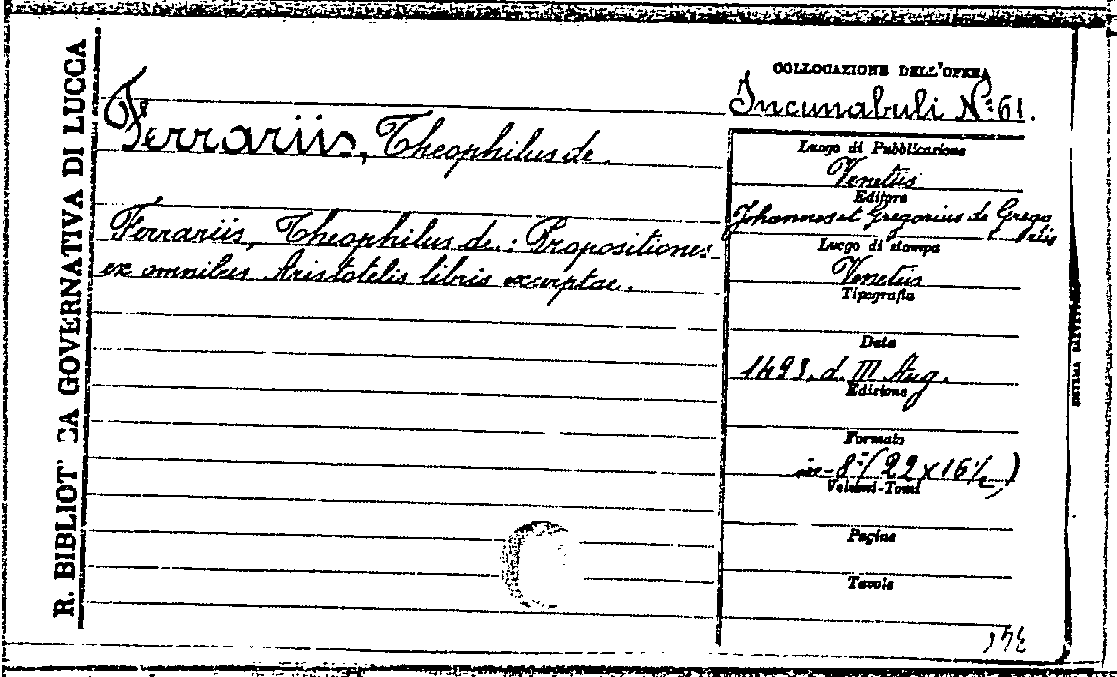 R. BIBLIOT CA GOVERNATIVA DI LUCCA
Ferrariis, Theophilus de.
Ferrariis, Theophilus de.: Propositiones
ex omnibus Aristotelis libris excerptae.
COLLOCAZIONE DELL'OPERA
Incunabuli N.º 61.
Luogo di Pubblicazione
Venetiis
Editore
Johannes et Gregorius de Grego
riis
Luogo di stampa
Venetiis
Tipografia
Data
1493, d. III Aug.
Edizione
Formato
in-8º (22 x 16 1/2)
Volumi-Tomi
Pagine
Tavole